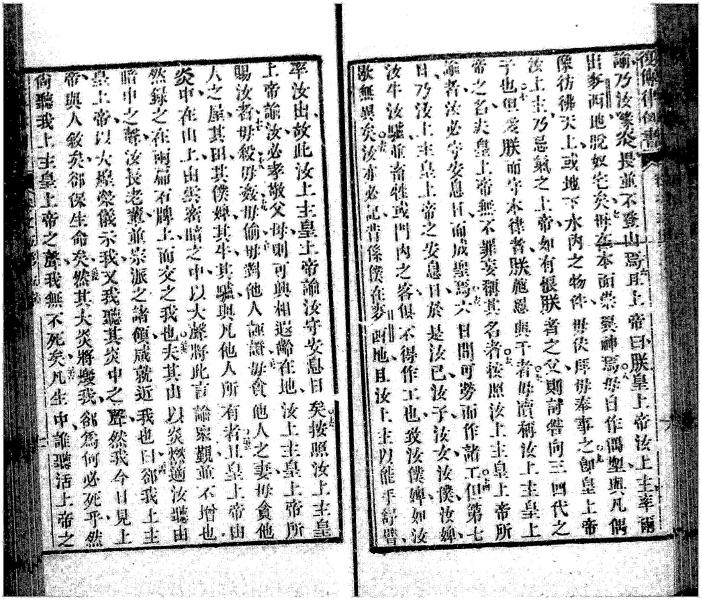 復傳律例書
諭乃汝等炎畏並不登山焉且上帝曰朕皇上帝汝上主率爾
出麥西地脫奴宅矣毋在本面崇異神焉毋自作偶塑與凡偶
像彷彿天上或地下水內之物件毋伏拜毋奉事之卽皇上帝
汝上主乃忌氣之上帝如有恨朕者之父則討咎向三四代之
子也但愛朕而守本律者朕施恩與千者毋瀆稱汝上主皇上
帝之名夫皇上帝無不罪妄稱其名者按照汝上主皇上帝所
諭者汝必守安息日而成聖焉六日間可勞而作諸工但第七
日乃汝上主皇上帝之安息日於是汝已汝子汝女汝僕汝婢
汝牛汝驢並畜牲或門內之客俱不得作工也致汝僕婢如汝
歇無異矣汝亦必記昔係僕在麥西地且汝上主以能手舒臂
率汝出故此汝上主皇上帝諭汝守安息日矣按照汝上主皇
上帝諭汝必孝敬父母則可興相遐齡在地汝上主皇上帝所
賜汝者毋殺毋姦毋偷毋對他人誣證毋貪他人之妻毋貪他
人之屋其田其僕婢其牛其驢與凡他人所有者且皇上帝由
炎中在山上由雲密暗之中以大聲將此言諭眾觀並不增也
然錄之在兩扁石牌上而交之我也夫其山以炎燃適汝聽由
暗中之聲汝長老輩並宗派之諸領咸就近我也曰卻我上主
皇上帝以大煌榮儀示我又我聽其炎中之聲然我今日見上
帝與人敘矣卻保生命矣然其大炎將燬我卻為何必死乎然
尙聽我上主皇上帝之聲我無不死矣凡生中誰聽活上帝之